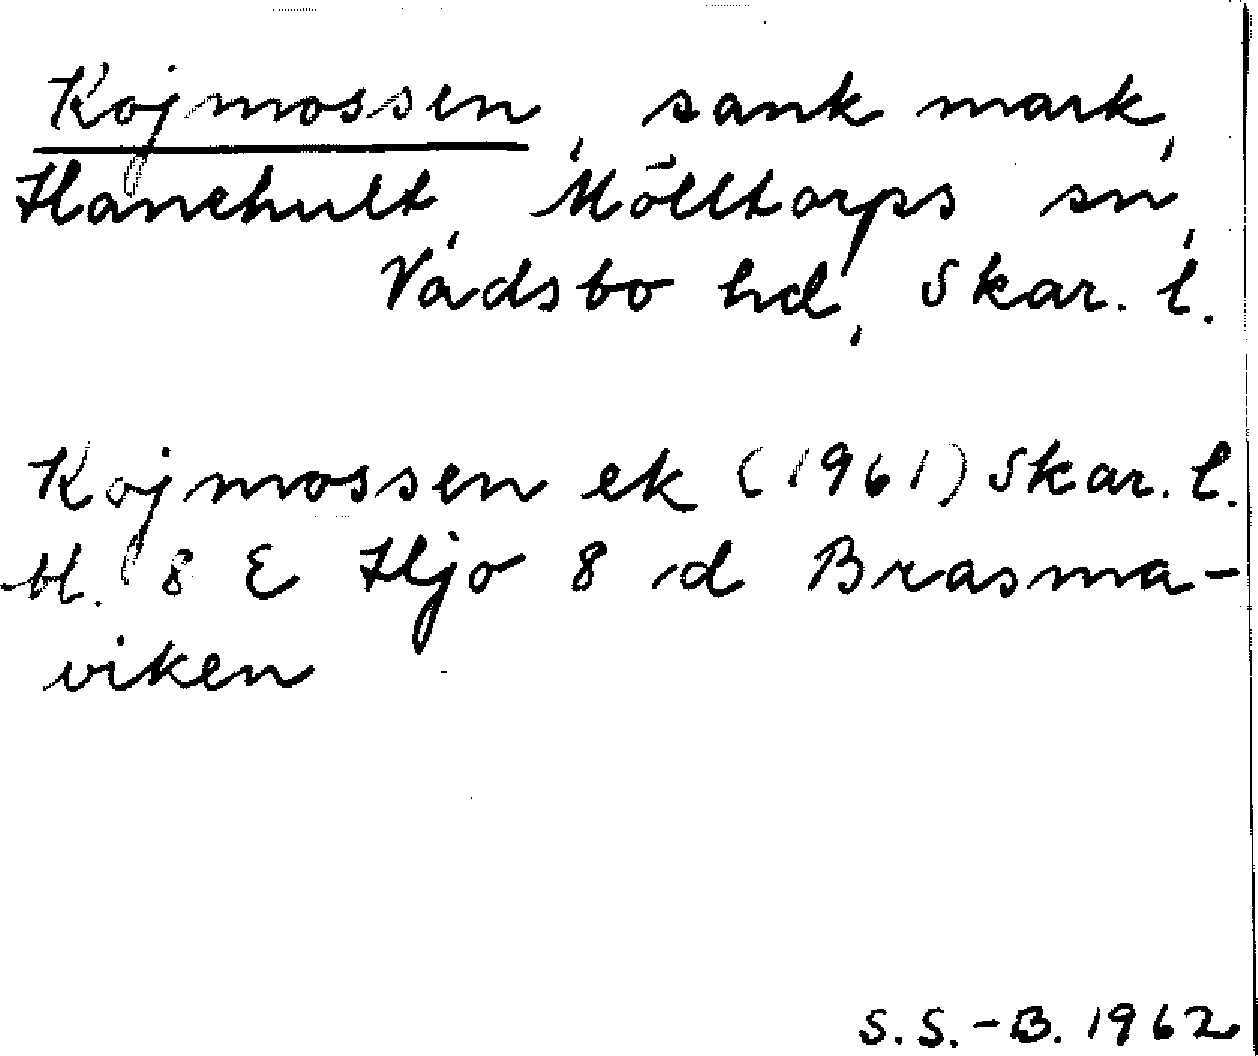 Kojmossen, sank mark,
Hanehult, Mölltorps sn,
Vadsbo hd, Skar. l.
Kojmossen ek (1961) Skar. l.
bl. 8 E Hjo 8 d Brasma-
viken
S.S.-B. 1962